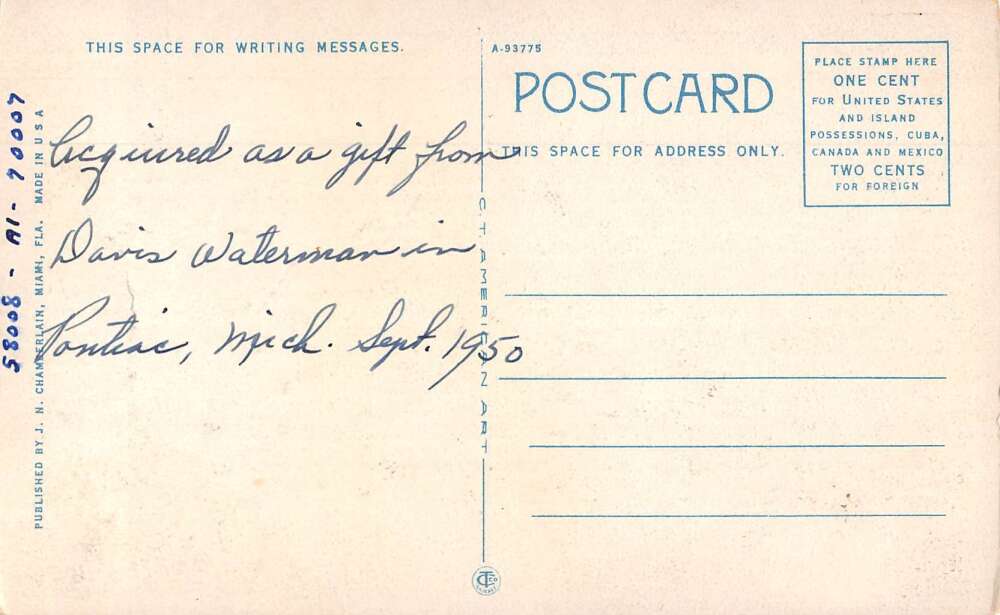 THIS SPACE FOR WRITING MESSAGES.
A-93775
POST CARD
THIS SPACE FOR ADDRESS ONLY.
PLACE STAMP HERE
ONE CENT
FOR UNITED STATES
AND ISLAND
POSSESSIONS, CUBA,
CANADA AND MEXICO
TWO CENTS
FOR FOREIGN
Acquired as a gift from
Davis Waterman in
Pontiac, Mich. Sept. 1950
58008 - A1 - 70007
PUBLISHED BY J. N. CHAMBERLAIN, MIAMI, FLA. MADE IN U S A
C. T. AMERICAN ART